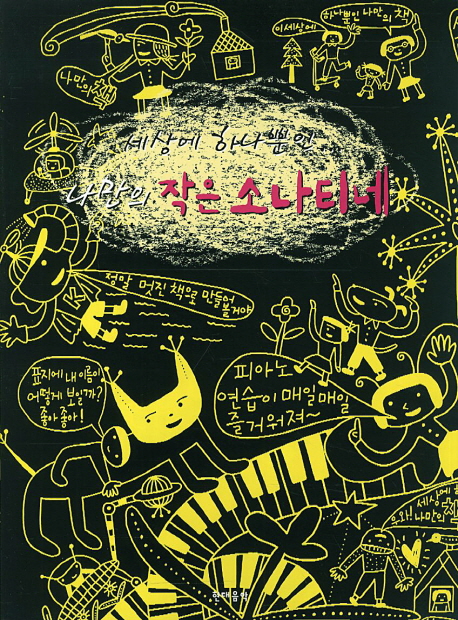 이세상에
하나뿐인 나만의 책
나만의 책
세상에 하나뿐인
나만의 작은 소나티네
정말 멋진 책으로 만들거야
표지에 내 이름이
어떻게 보일까?
좋아 좋아!
피아노
연습이 매일매일
즐거워져~
세상에
우와! 나만의 책
현대음악